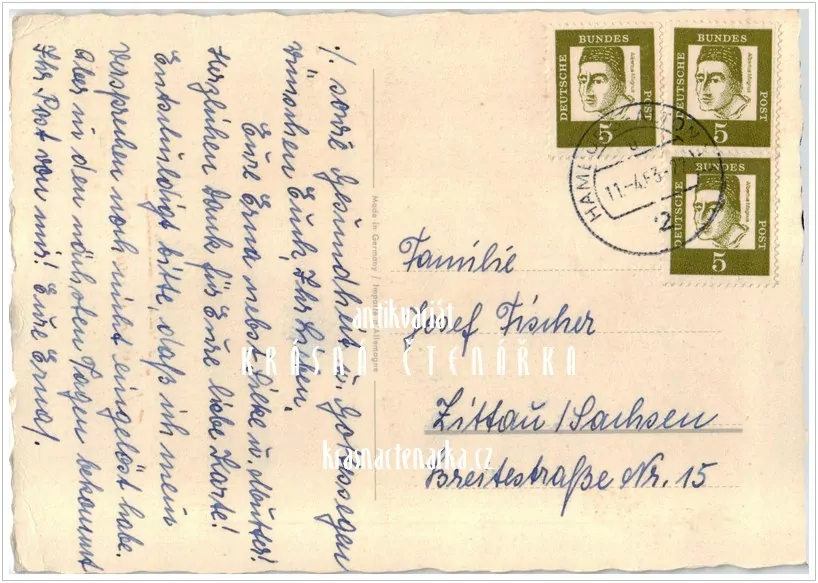 ·/. sowie Gesundheit u. Gottessegen
wünschen Euch, Ihr Lieben,
Eure Erna nebst Heike u. Mutter!
Herzlichen Dank für Eure liebe Karte!
Entschuldigt bitte, daß ich mein
Versprechen noch nicht eingelöst habe.
Aber in den nächsten Tagen bekommt
Ihr Post von mir! Eure Erna/.
Made in Germany / Importé d'Allemagne
DEUTSCHE BUNDES POST
Albertus Magnus
5
DEUTSCHE BUNDES POST
Albertus Magnus
5
DEUTSCHE BUNDES POST
Albertus Magnus
5
11.-4.63.
2
Familie
Josef Fischer
Zittau/Sachsen
Breitestraße Nr. 15
antikvariát
KRÁSNÁ ČTENÁŘKA
krasnactenarka.cz